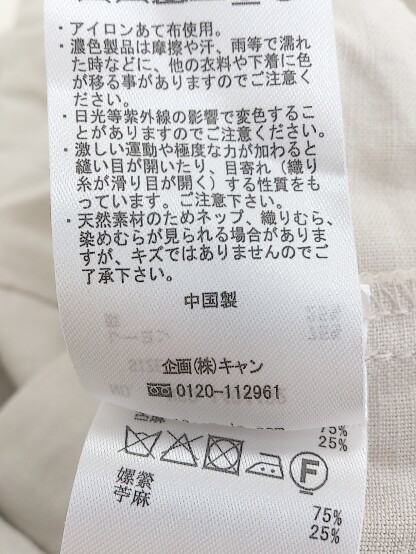 ・アイロンあて布使用。
・濃色製品は摩擦や汗、雨等で濡れ
た時などに、他の衣料や下着に色
が移る事がありますのでご注意く
ださい。
・日光等紫外線の影響で変色するこ
とがありますのでご注意ください。
・激しい運動や極度な力が加わると
縫い目が開いたり、目寄れ（織り
糸が滑り目が開く）する性質をも
っています。ご注意下さい。
・天然素材のためネップ、織りむら、
染めむらが見られる場合がありま
すが、キズではありませんのでご
了承下さい。
中国製
企画(株)キャン
0120-112961
75%
25%
F
嫘縈
苧麻
75%
25%